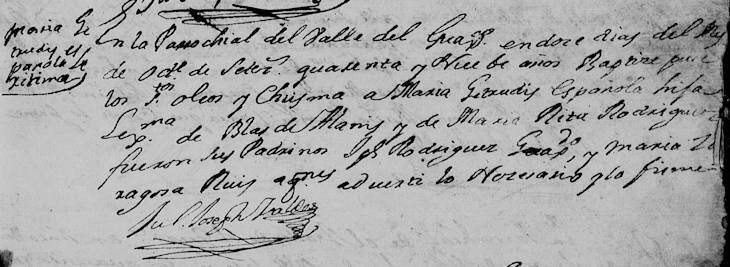 Maria Ge
trudis es
pañola Le
gitima
En la Parrochial del Valle del Guaxe. en doze dias del Mes
de de Setez. quarenta y Nuebe años Baptize puse
los Stos. oleos y Chrisma a Maria Getrudis Española hija
Lexma de Blas de Alanis y de Maria Rita Rodriguez
fueron sus Padrinos Jph Rodriguez y Maria Za
ragosa Ruis a qnes adverti lo Nezesario y lo firme
Ju. Joseph